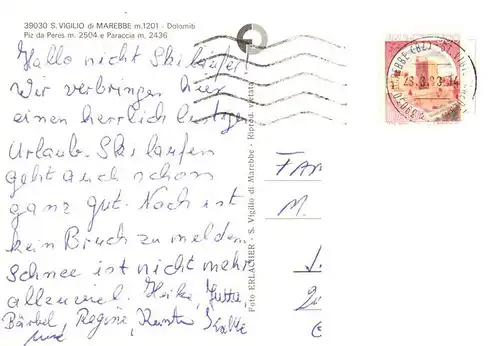 39030 S. VIGILIO di MAREBBE m.1201 - Dolomiti
Piz da Peres m. 2504 e Paraccia m. 2436
Hallo nicht Skiläufer!
Wir verbringen hier
einen herrlich lustigen
Urlaub. Skilaufen
geht auch schon
ganz gut. Noch ist
kein Bruch zu melden.
Schnee ist nicht mehr
allzuviel. Heike, Jutta,
Bärbel, Regine, Kerstin
Foto ERLACHER - S. Vigilio di Marebbe - Riprod. vietata
FAM
M.
39030